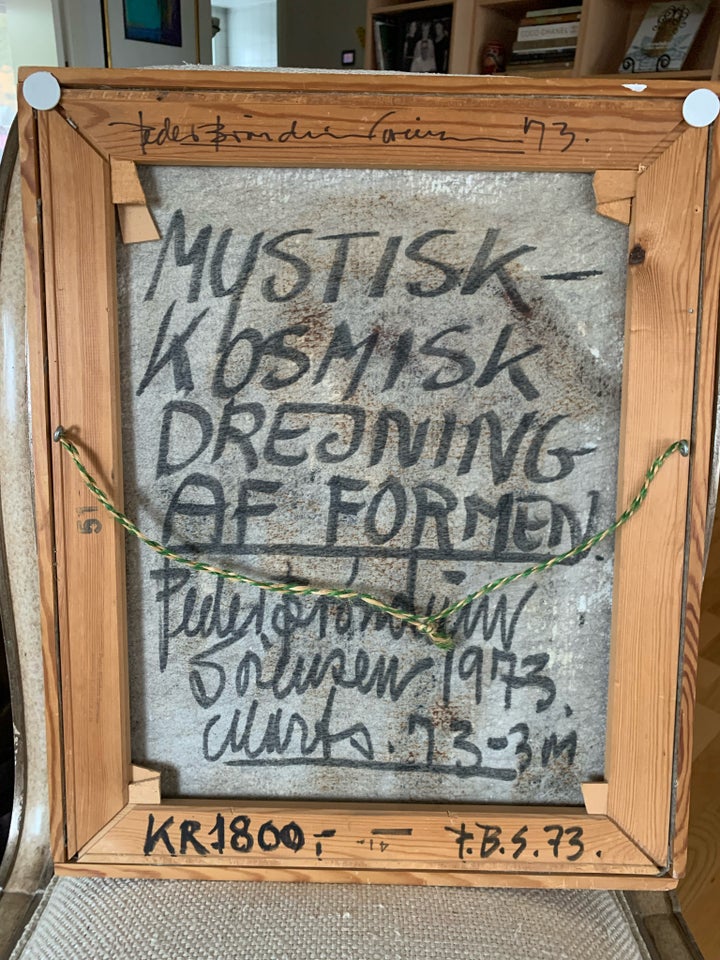 COCO CHANEL
Peder Brøndum Sørensen 73.
MYSTISK-
KOSMISK
DREJNING
AF FORMEN
Peder Brøndum
Sørensen 1973.
Marts. 73-3m
51
KR1800,- 41 — P.B.S.73.